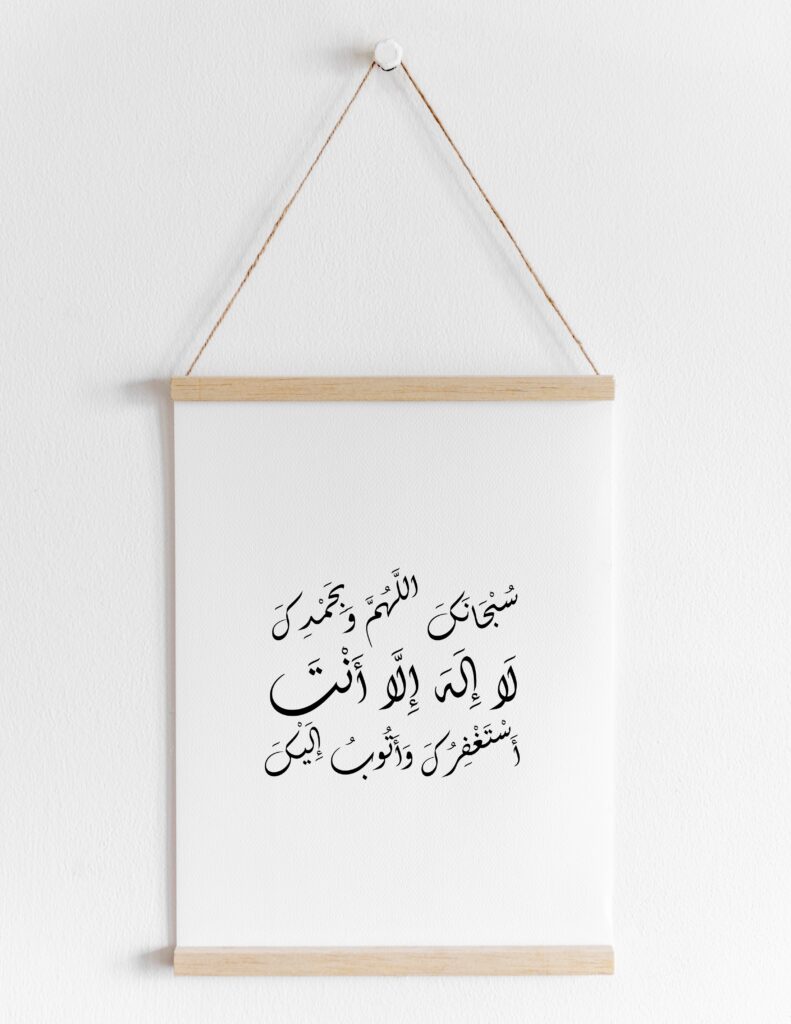 سُبْحَانَكَ اللَّهُمَّ وَبِحَمْدِكَ
لَا إِلَهَ إِلَّا أَنْتَ
أَسْتَغْفِرُكَ وَأَتُوبُ إِلَيْكَ